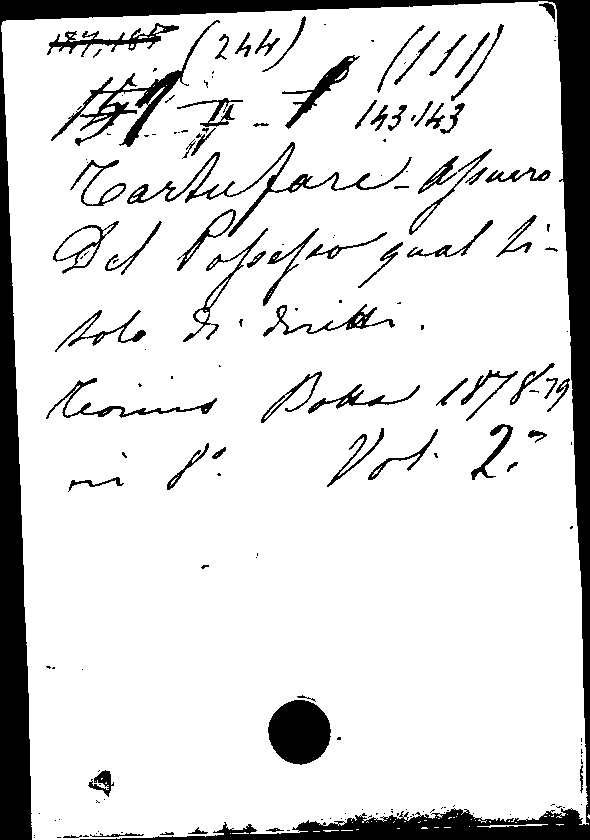 177,187 (244) (111)
143.143
Tartufari - Assuero.
Del Possesso qual ti-
tolo di diritti.
Torino Botta 1878-79
in 8°. Vol. 2.°